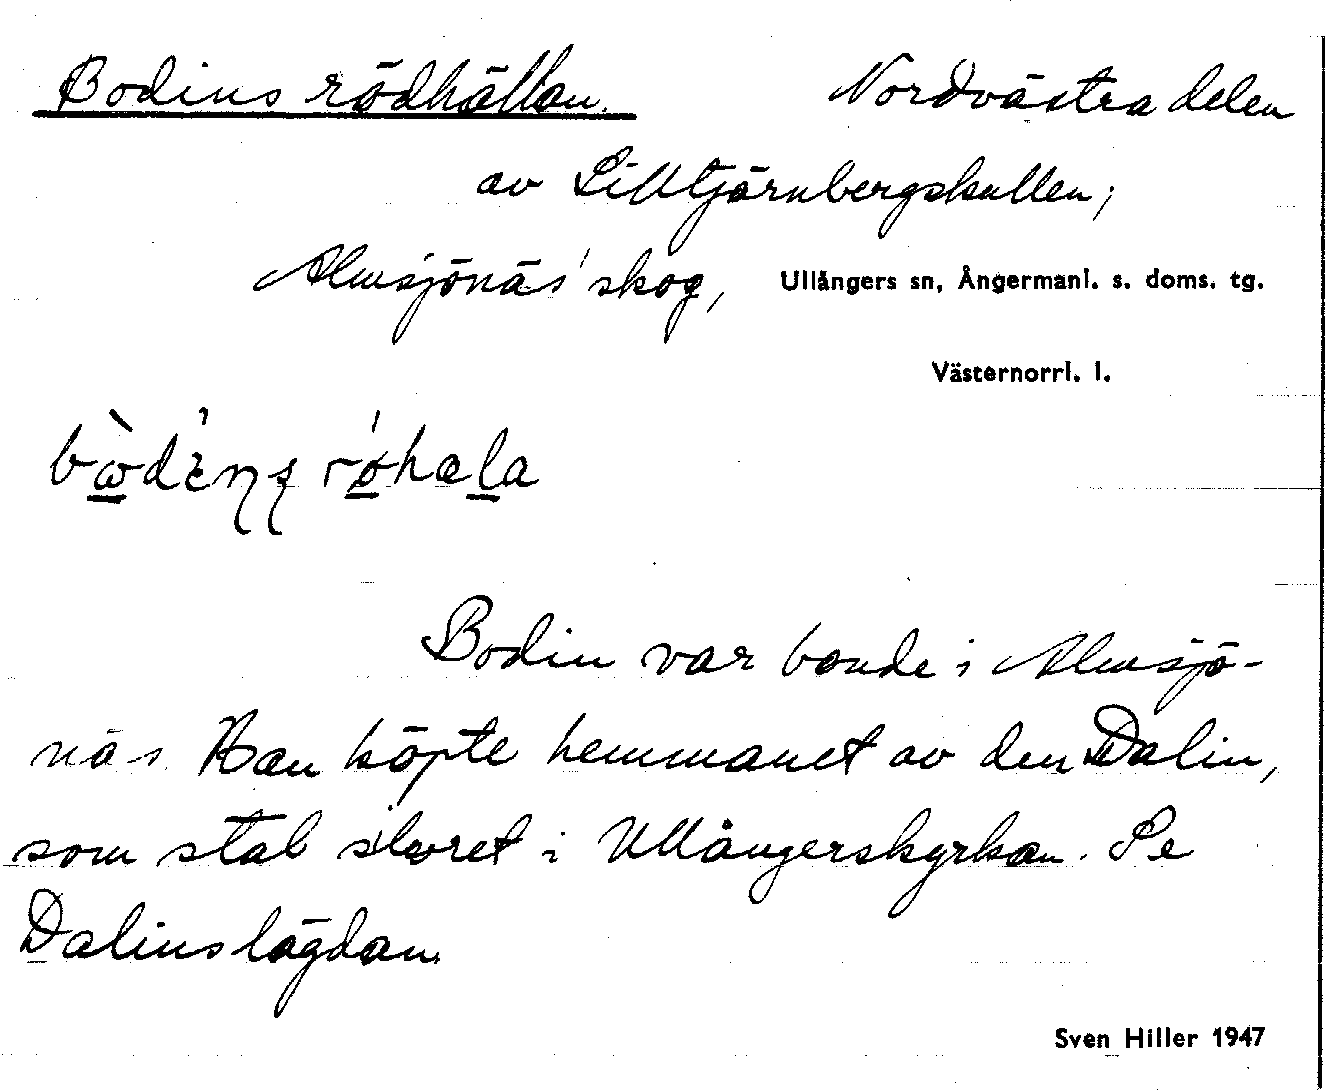 Bodins rödhällan. Nordvästra delen
av Lilltjärnbergskullen,
Almsjönäs' skog, Ullångers sn, Ångermanl. s. doms. tg.
Västernorrl. l.
Bodin var bonde i Almsjö-
näs. Han köpte hemmanet av den Dalin,
som stal silvret i Ullångerskyrkan. Se
Dalinslägdan.
Sven Hiller 1947